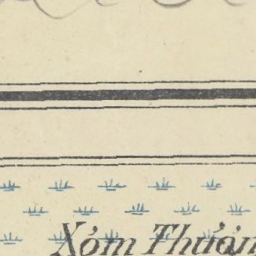 Xóm Thuán